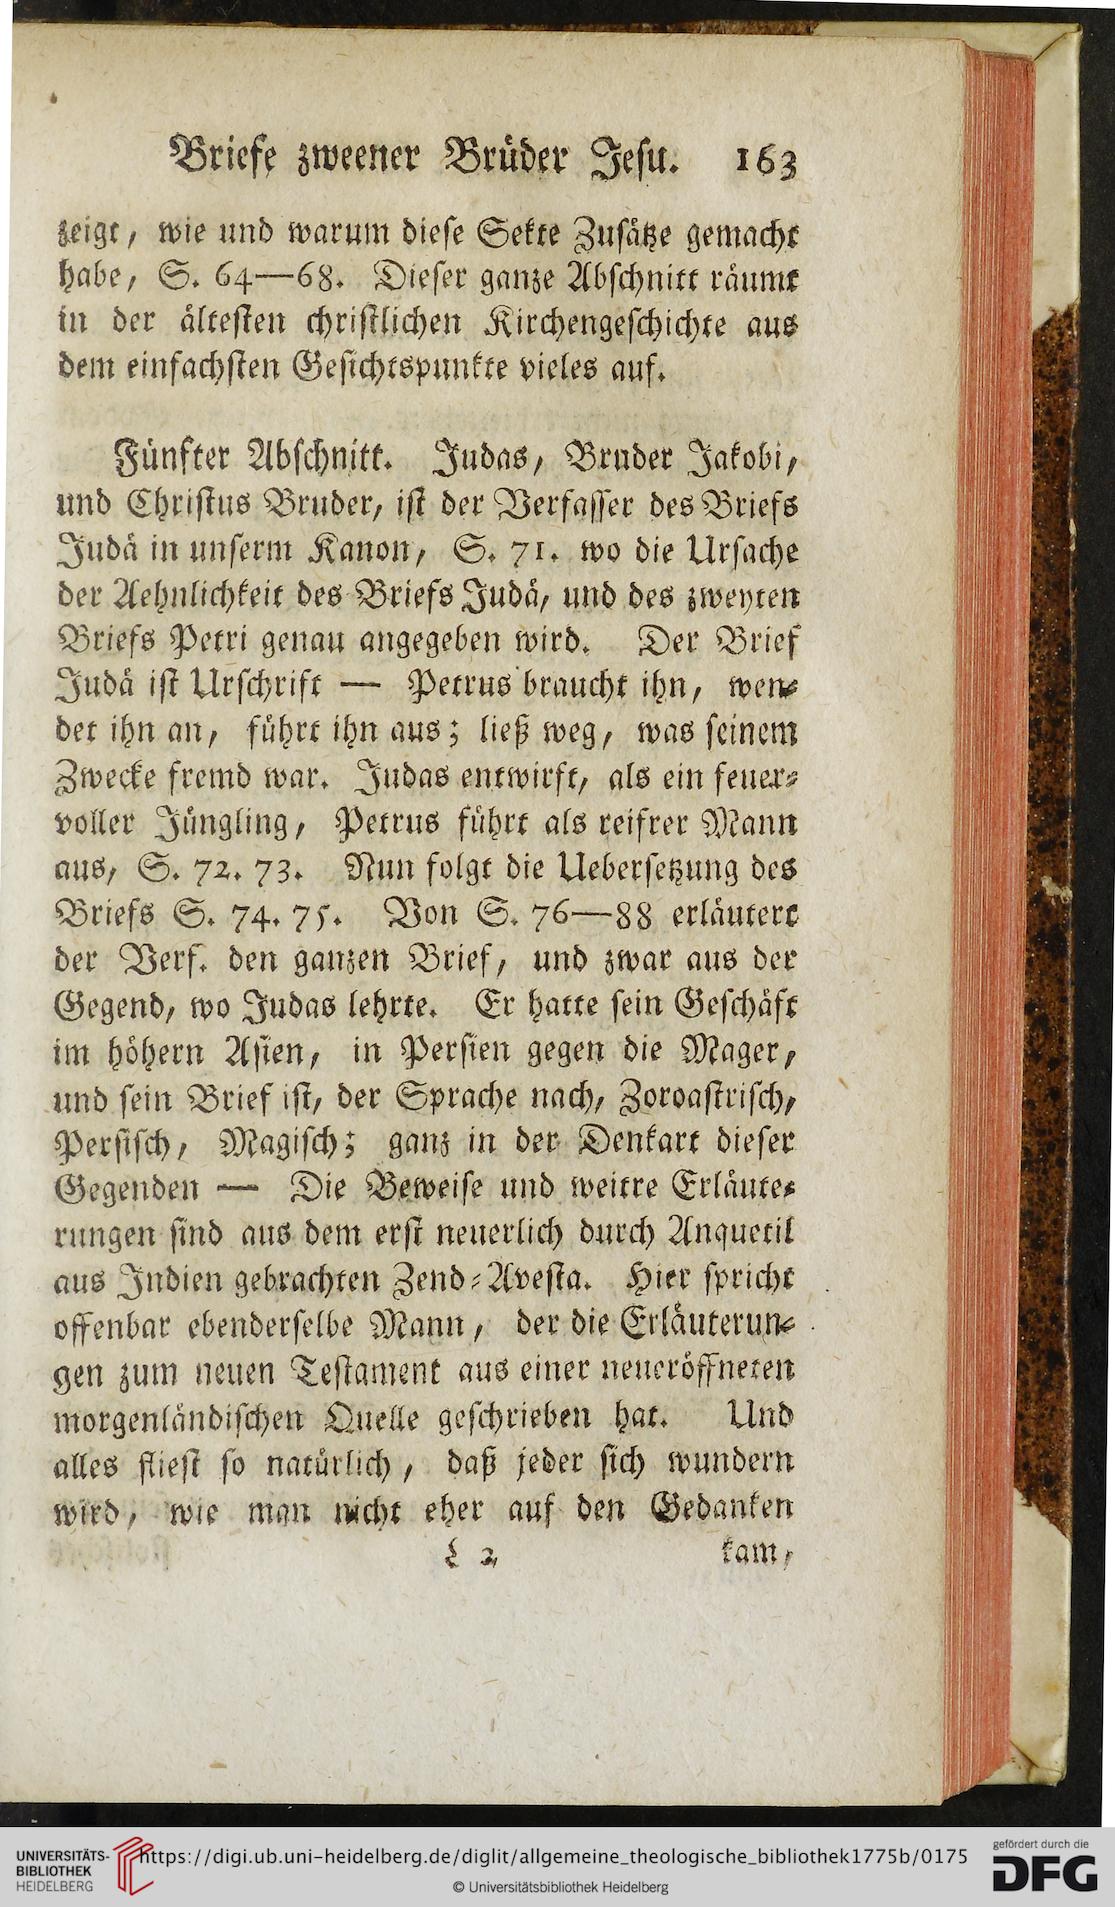 Briefe zweener Brüder Jesu. 163
zeigt, wie und warum diese Sekte Zusätze gemacht
habe, S. 64—68. Dieser ganze Abschnitt räumt
in der ältesten christlichen Kirchengeschichte aus
dem einfachsten Gesichtspunkte vieles auf.
Fünfter Abschnitt. Judas, Bruder Jakobi,
und Christus Bruder, ist der Verfasser des Briefs
Judä in unserm Kanon, S. 71. wo die Ursache
der Aehnlichkeit des Briefs Judä, und des zweyten
Briefs Petri genau angegeben wird. Der Brief
Judä ist Urschrift — Petrus braucht ihn, wen-
det ihn an, führt ihn aus; ließ weg, was seinem
Zwecke fremd war. Judas entwirft, als ein feuer-
voller Jüngling, Petrus führt als reifrer Mann
aus, S. 72. 73. Nun folgt die Uebersetzung des
Briefs S. 74. 75. Von S. 76—88 erläutert
der Verf. den ganzen Brief, und zwar aus der
Gegend, wo Judas lehrte. Er hatte sein Geschäft
im höhern Asien, in Persien gegen die Mager,
und sein Brief ist, der Sprache nach, Zoroastrisch,
Persisch, Magisch; ganz in der Denkart dieser
Gegenden — Die Beweise und weitre Erläute-
rungen sind aus dem erst neuerlich durch Anquetil
aus Indien gebrachten Zend-Avesta. Hier spricht
offenbar ebenderselbe Mann, der die Erläuterun-
gen zum neuen Testament aus einer neueröffneten
morgenländischen Quelle geschrieben hat. Und
alles fliest so natürlich, daß jeder sich wundern
wird, wie man nicht eher auf den Gedanken
L 2 kam,
UNIVERSITÄTS-
BIBLIOTHEK
HEIDELBERG
https://digi.ub.uni-heidelberg.de/diglit/allgemeine_theologische_bibliothek1775b/0175
© Universitätsbibliothek Heidelberg
gefördert durch die
DFG